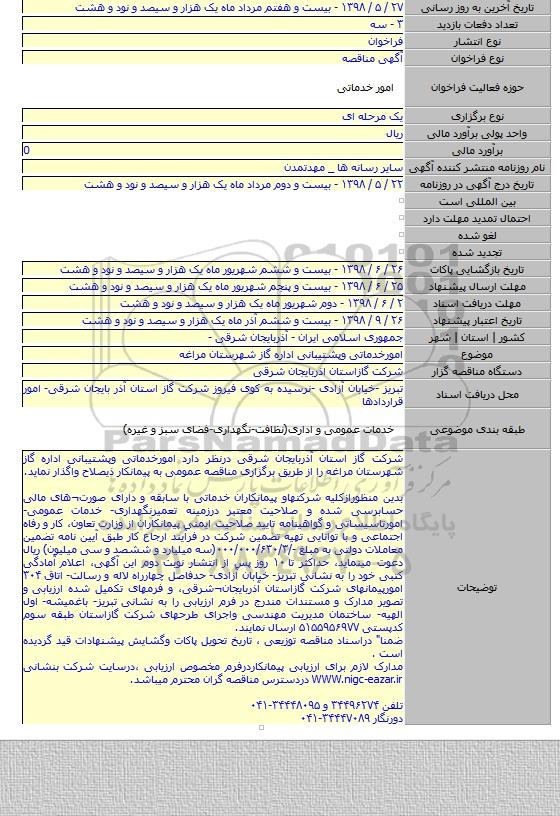 تاریخ آخرین به روز رسانی ۲۷ / ۵ / ۱۳۹۸ - بیست و هفتم مرداد ماه یک هزار و سیصد و نود و هشت
تعداد دفعات بازدید ۳ - سه
نوع انتشار فراخوان
نوع فراخوان آگهی مناقصه
حوزه فعالیت فراخوان امور خدماتی
نوع برگزاری یک مرحله ای
واحد پولی برآورد مالی ریال
برآورد مالی 0
نام روزنامه منتشر کننده آگهی سایر رسانه ها _ مهدتمدن
تاریخ درج آگهی در روزنامه ۲۲ / ۵ / ۱۳۹۸ - بیست و دوم مرداد ماه یک هزار و سیصد و نود و هشت
بین المللی است
احتمال تمدید مهلت دارد
لغو شده
تجدید شده
تاریخ بازگشایی پاکات ۲۶ / ۶ / ۱۳۹۸ - بیست و ششم شهریور ماه یک هزار و سیصد و نود و هشت
مهلت ارسال پیشنهاد ۲۵ / ۶ / ۱۳۹۸ - بیست و پنجم شهریور ماه یک هزار و سیصد و نود و هشت
مهلت دریافت اسناد ۲ / ۶ / ۱۳۹۸ - دوم شهریور ماه یک هزار و سیصد و نود و هشت
تاریخ اعتبار پیشنهاد ۲۶ / ۹ / ۱۳۹۸ - بیست و ششم آذر ماه یک هزار و سیصد و نود و هشت
کشور | استان | شهر جمهوری اسلامی ایران - آذربایجان شرقی -
موضوع امورخدماتی وپشتیبانی اداره گاز شهرستان مراغه
دستگاه مناقصه گزار شرکت گازاستان آذربایجان شرقی
محل دریافت اسناد تبریز -خیابان آزادی -نرسیده به کوی فیروز شرکت گاز استان آذر بایجان شرقی- امور
قراردادها
طبقه بندی موضوعی خدمات عمومی و اداری(نظافت-نگهداری-فضای سبز و غیره)
توضیحات
شرکت گاز استان آذربایجان شرقی درنظر دارد امورخدماتی وپشتیبانی اداره گاز
شهرستان مراغه را از طریق برگزاری مناقصه عمومی به پیمانکار ذیصلاح واگذار نماید.
بدین منظورازکلیه شرکتهاو پیمانکاران خدماتی با سابقه و دارای صورت¬های مالی
حسابرسی شده و صلاحیت معتبر درزمینه تعمیرنگهداری- خدمات عمومی-
امورتاسیساتی و گواهینامه تایید صلاحیت ایمنی پیمانکاران از وزارت تعاون، کار و رفاه
اجتماعی و با توانایی تهیه تضمین شرکت در فرآیند ارجاع کار طبق آیین نامه تضمین
معاملات دولتی به مبلغ -/۰۰۰/۰۰۰/۶۳۰/۳(سه میلیارد و ششصد و سی میلیون) ریال
دعوت مینماید، حداکثر تا ۱۰ روز پس از انتشار نوبت دوم این آگهی، اعلام آمادگی
کتبی خود را به نشانی تبریز- خیابان آزادی- حدفاصل چهارراه لاله و رسالت- اتاق ۳۰۴
امورپیمانهای شرکت گازاستان آذربایجان¬شرقی، و فرمهای تکمیل شده ارزیابی و
تصویر مدارک و مستندات مندرج در فرم ارزیابی را به نشانی تبریز- باغمیشه- اول
الهیه- ساختمان مدیریت مهندسی واجرای طرحهای شرکت گازاستان طبقه سوم
کدپستی ۵۱۵۵۹۵۶۹۷۷ ارسال نمایند.
ضمنا" دراسناد مناقصه توزیعی ، تاریخ تحویل پاکات وگشایش پیشنهادات قید گردیده
است .
مدارک لازم برای ارزیابی پیمانکاردرفرم مخصوص ارزیابی ،درسایت شرکت بنشانی
WWW.nigc-eazar.ir دردسترس مناقصه گران محترم میباشد.
تلفن ۳۴۴۹۶۲۷۴ و ۳۴۴۴۸۰۹۵-۰۴۱
دورنگار ۳۴۴۴۷۰۸۹-۰۴۱
ParsNamadData